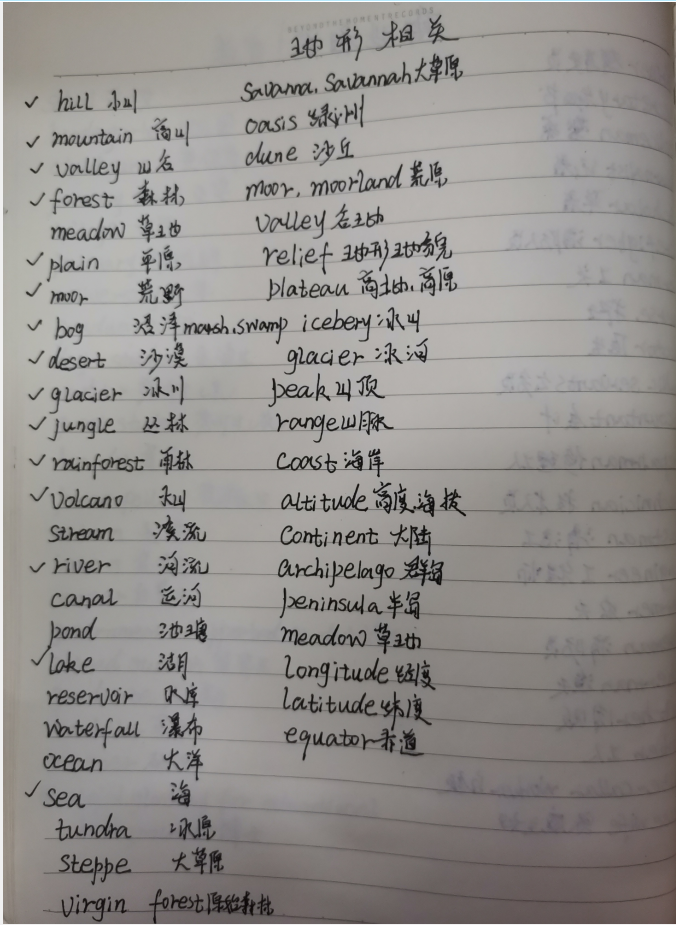 地形相关
✓ hill 小山
✓ mountain 高山
✓ valley 山谷
✓ forest 森林
meadow 草地
✓ plain 草原
✓ moor 荒野
✓ bog 沼泽 marsh, swamp
✓ desert 沙漠
✓ glacier 冰川
✓ jungle 丛林
✓ rainforest 雨林
✓ volcano 火山
stream 溪流
✓ river 河流
canal 运河
pond 池塘
✓ lake 湖
reservoir 水库
waterfall 瀑布
ocean 大洋
✓ sea 海
tundra 冰原
steppe 大草原
virgin forest 原始森林
savanna, savannah 大草原
oasis 绿洲
dune 沙丘
moor, moorland 荒原
valley 谷地
relief 地形地貌
plateau 高地, 高原
icebery 冰山
glacier 冰河
peak 山顶
range 山脉
coast 海岸
altitude 高度, 海拔
continent 大陆
archipelago 群岛
peninsula 半岛
meadow 草地
longitude 经度
latitude 纬度
equator 赤道